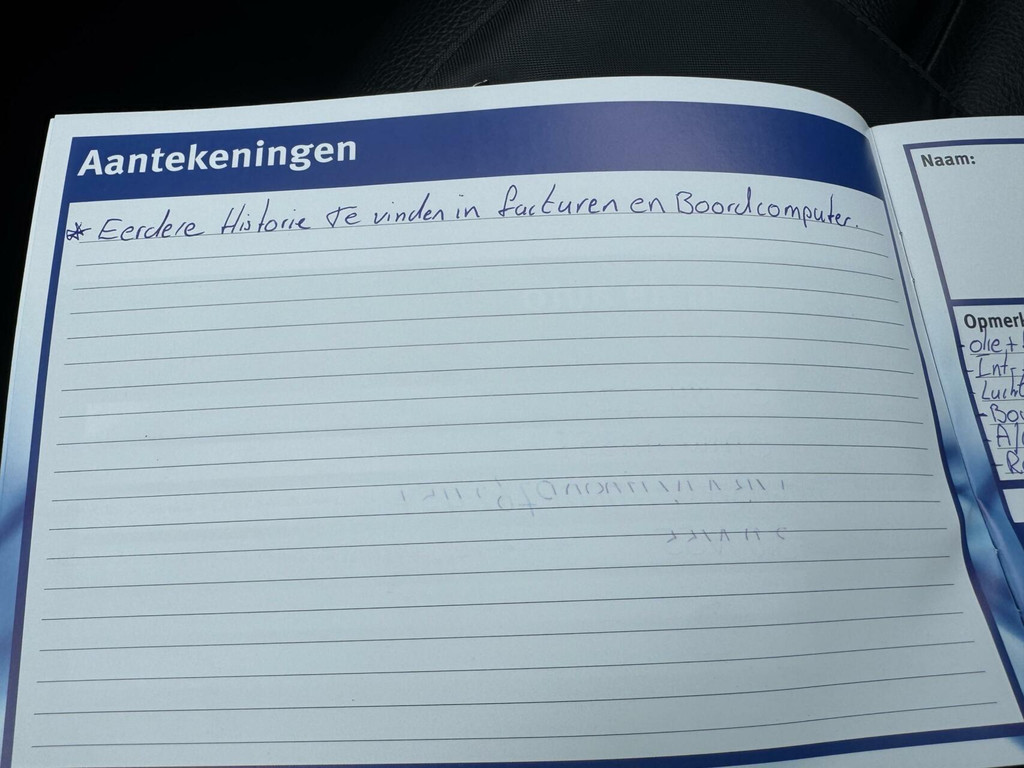 Aantekeningen
* Eerdere Historie Te vinden in facturen en Boordcomputer.
Naam:
Opmerk
- olie +
- Int
- Lucht
- Bo
- A/
- R